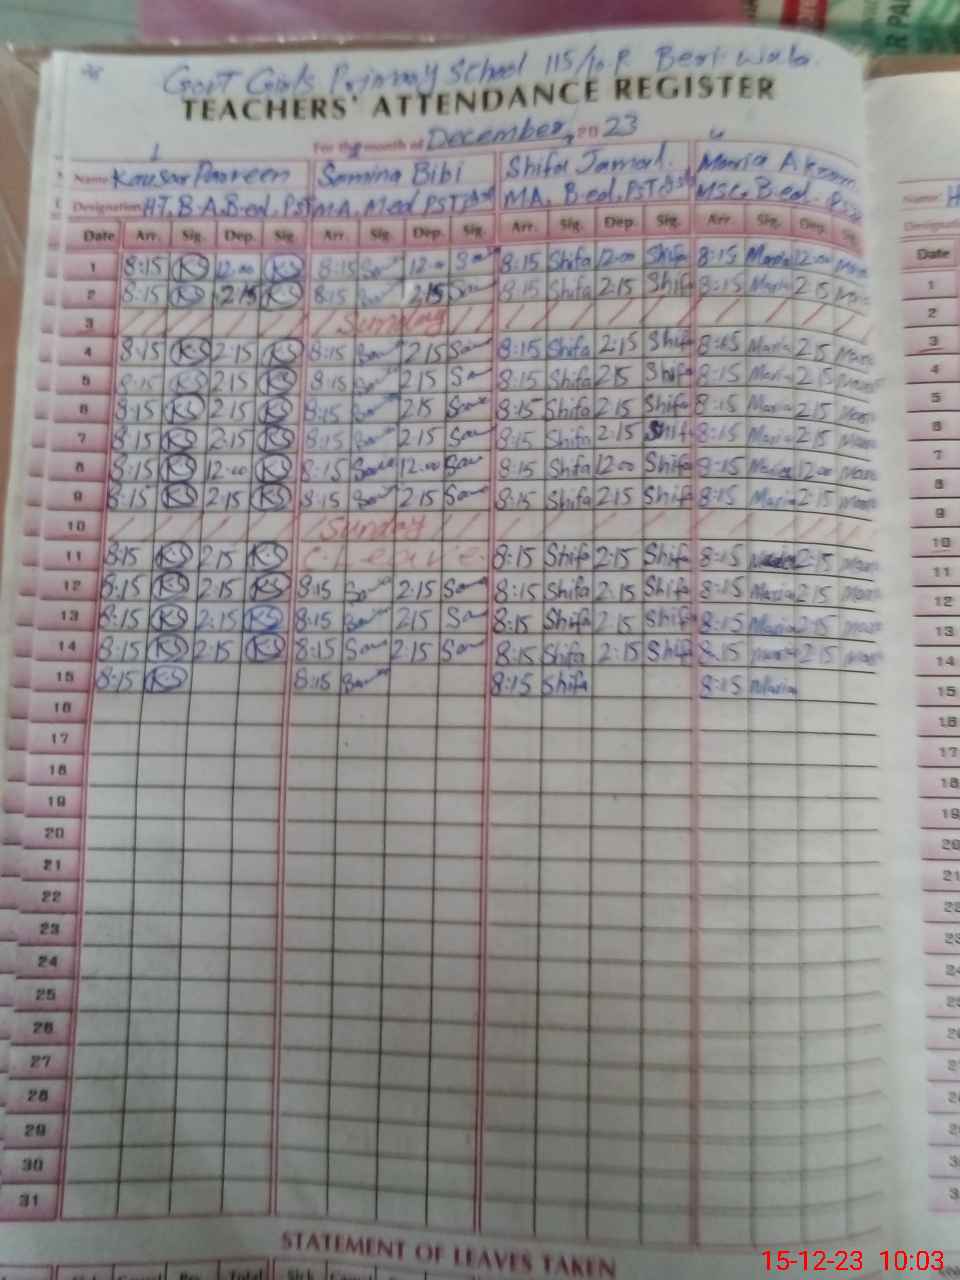 Govt Girls Primary School 115/10-R Beri wala.
TEACHERS' ATTENDANCE REGISTER
For the month of December, 2023
1
Name Kausar Parveen Samina Bibi Shifa Jamal. Maria Akram
Designation HT, B.A, B-ed, PST MA, Med PST MA, B-ed, PST MSc, B-ed
Date Arr. Sig. Dep. Sig. Arr. Sig. Dep. Sig. Arr. Sig. Dep. Sig. Arr. Sig. Dep. Sig.
1 8:15 KS 12:00 KS 8:15 Sam 12:00 Sam 8:15 Shifa 12:00 Shifa 8:15 Maria 12:00 Maria
2 8:15 KS 2:15 KS 8:15 Sam 2:15 Sam 8:15 Shifa 2:15 Shifa 8:15 Maria 2:15 Maria
3 Sunday
4 8:15 KS 2:15 KS 8:15 Sam 2:15 Sam 8:15 Shifa 2:15 Shifa 8:15 Maria 2:15 Maria
5 8:15 KS 2:15 KS 8:15 Sam 2:15 Sam 8:15 Shifa 2:15 Shifa 8:15 Maria 2:15 Maria
6 8:15 KS 2:15 KS 8:15 Sam 2:15 Sam 8:15 Shifa 2:15 Shifa 8:15 Maria 2:15 Maria
7 8:15 KS 2:15 KS 8:15 Sam 2:15 Sam 8:15 Shifa 2:15 Shifa 8:15 Maria 2:15 Maria
8 8:15 KS 12:00 KS 8:15 Sam 12:00 Sam 8:15 Shifa 12:00 Shifa 8:15 Maria 12:00 Maria
9 8:15 KS 2:15 KS 8:15 Sam 2:15 Sam 8:15 Shifa 2:15 Shifa 8:15 Maria 2:15 Maria
10 Sunday
11 8:15 KS 2:15 KS C. Leave 8:15 Shifa 2:15 Shifa 8:15 Maria 2:15 Maria
12 8:15 KS 2:15 KS 8:15 Sam 2:15 Sam 8:15 Shifa 2:15 Shifa 8:15 Maria 2:15 Maria
13 8:15 KS 2:15 KS 8:15 Sam 2:15 Sam 8:15 Shifa 2:15 Shifa 8:15 Maria 2:15 Maria
14 8:15 KS 2:15 KS 8:15 Sam 2:15 Sam 8:15 Shifa 2:15 Shifa 8:15 Maria 2:15 Maria
15 8:15 KS 8:15 Sam 8:15 Shifa 8:15 Maria
16
17
18
19
20
21
22
23
24
25
26
27
28
29
30
31
STATEMENT OF LEAVES TAKEN
Date
1
2
3
4
5
6
7
8
9
10
11
12
13
14
15
16
17
18
19
20
21
22
23
24
15-12-23 10:03